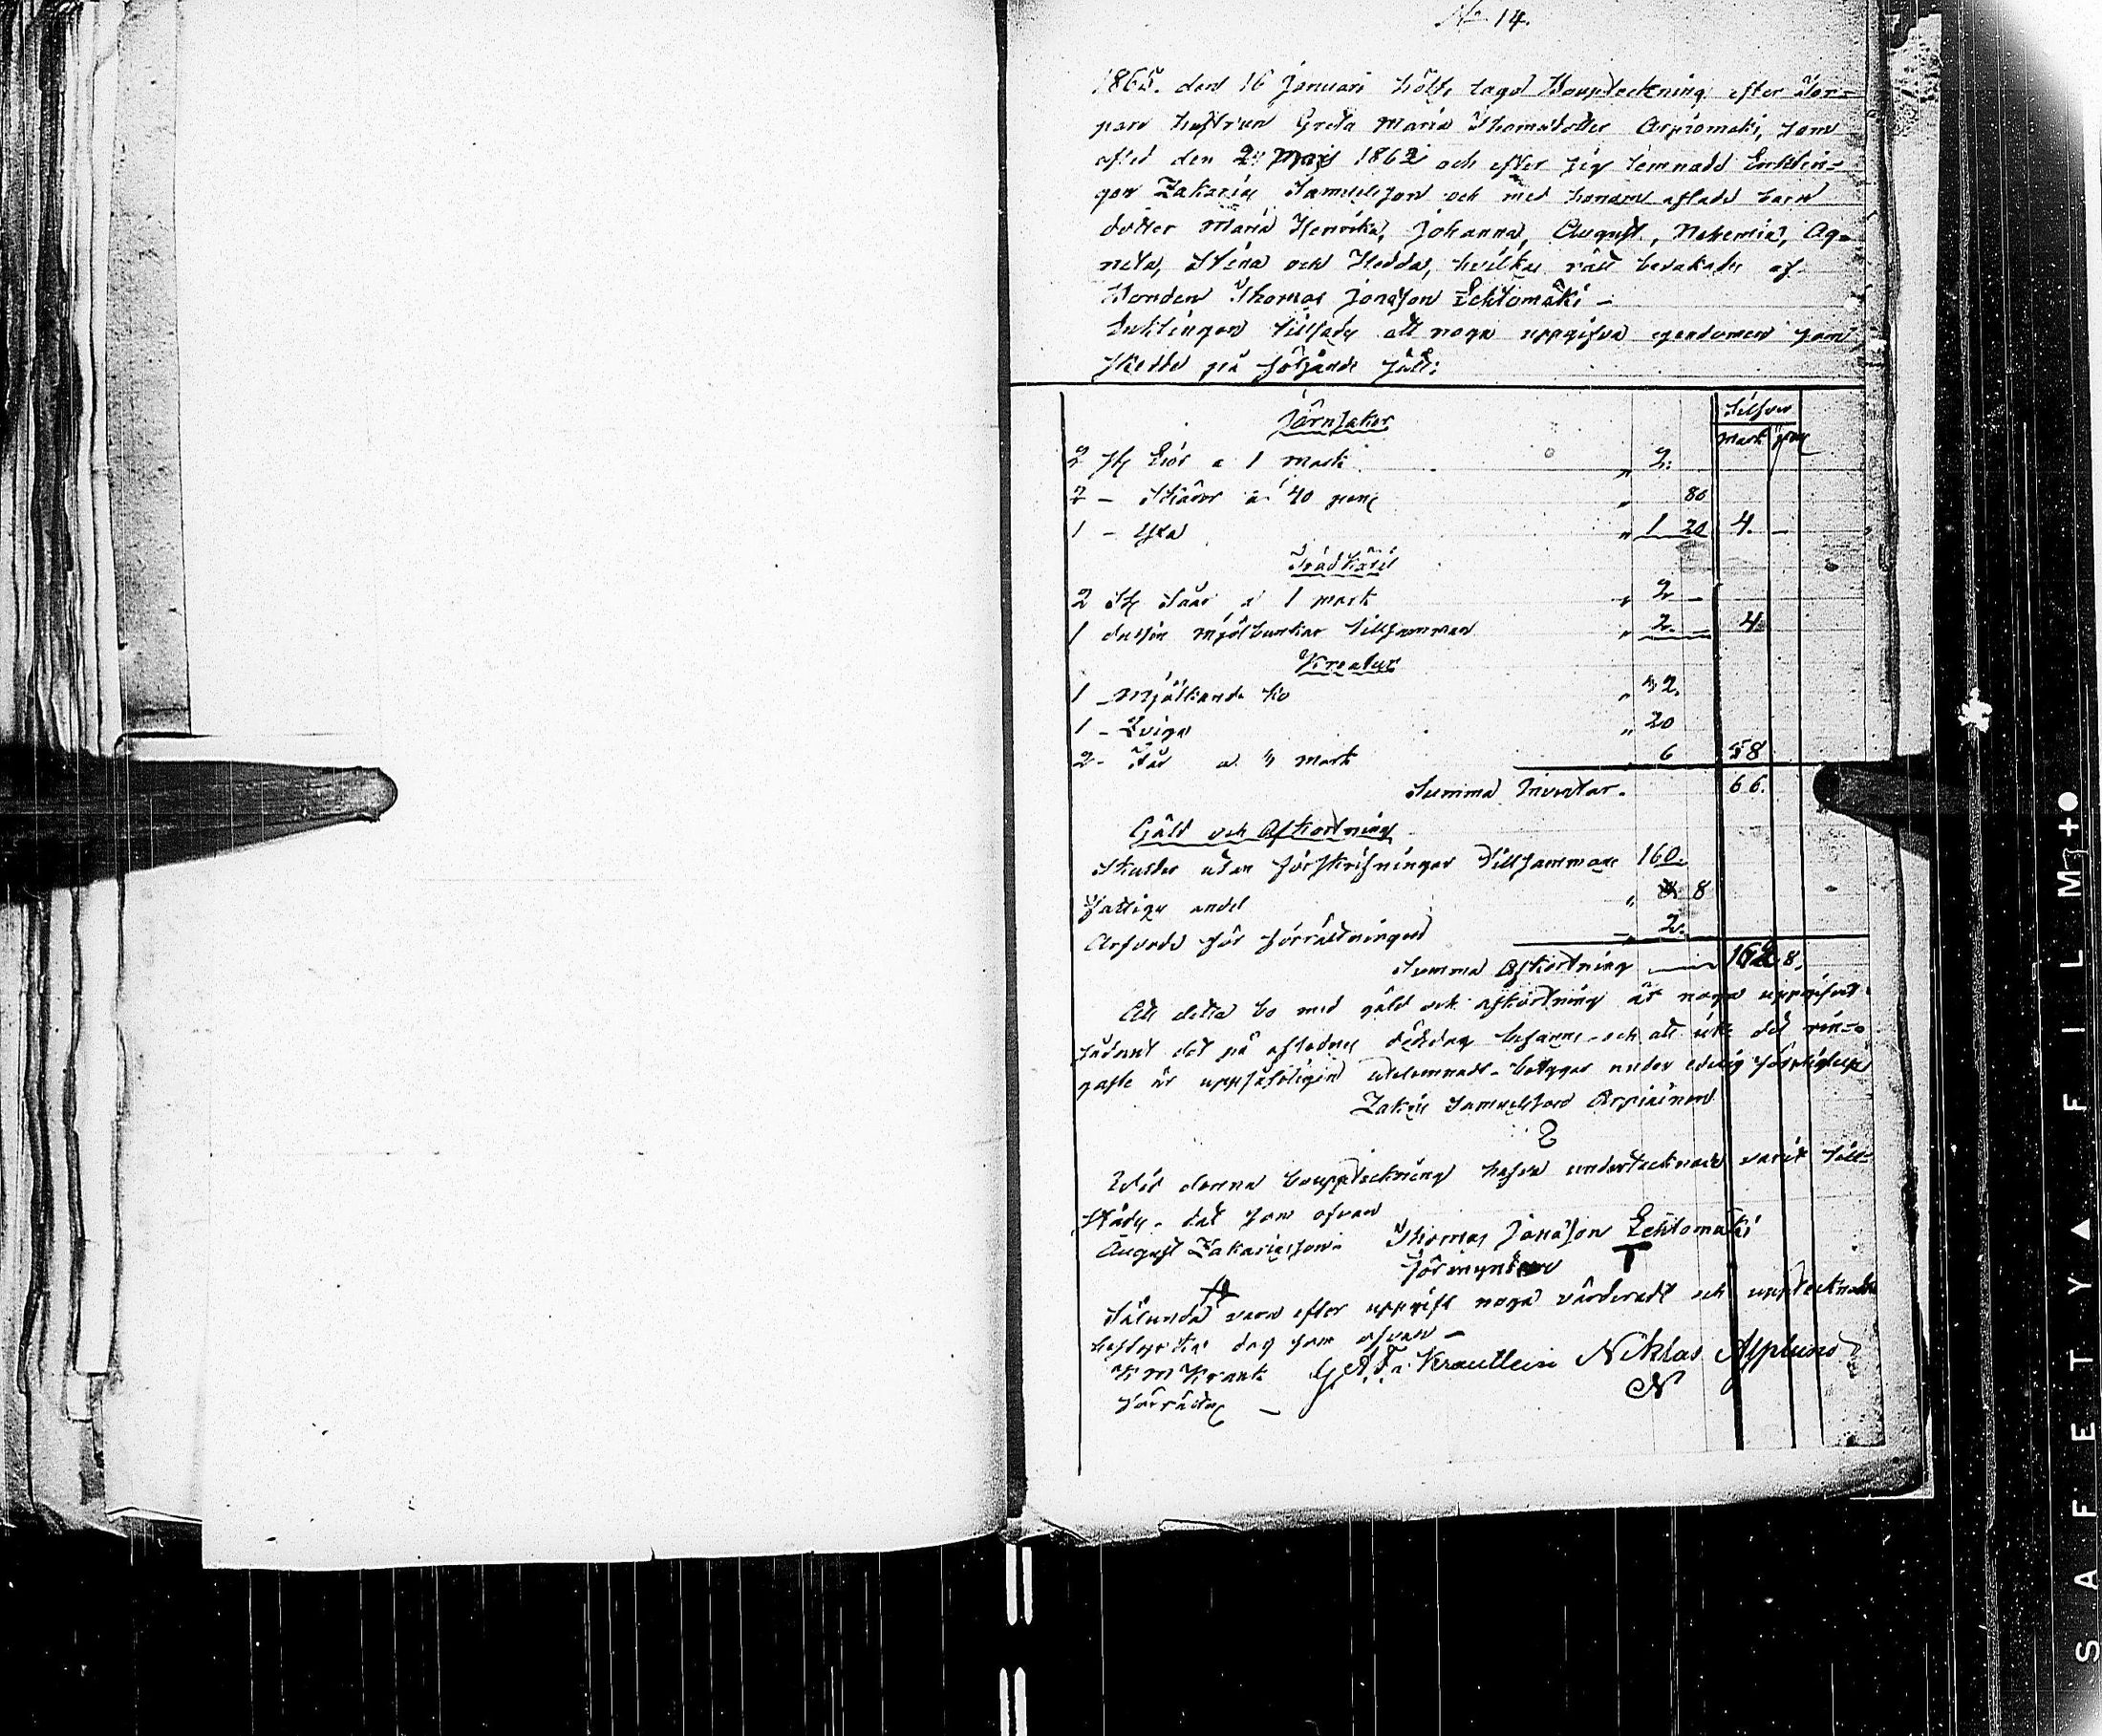 No 14.
1865. den 16 Januari hölts laga Bouptekning efter Tor-
pare hustrun Greta Maria Thomasdotter Arpiomäki, som
afled den 24 Maj 1862 och efter sig lemnade Enklin-
gen Zakarias Samuelsson och med honom aflade barn
dotter Maria Henrika, Johanna, August, Nehemia, Ag-
neta, Stina och Hedda, hvilkas rätt bevakades af
Thomas Jonasson Lehtomäki -
Enklingen tillsades att noga uppgifva egendomen som
skedde på följande sätt:
Silfver
Jernsaker
mark peni
2 st Liór a 1 mark " 2.
2 - Skäror a 40 peni " 80
1 - Yxa " 1 20 4. -
Trädkäril
2 St Såar a 1 mark " 2 -
1 dussin mjölbunkar tillsamman " 2. 4.
Kreatur
1 - Mjölkande ko " 32.
1 - Qviga " 20
2 - Får a 3 mark 6 58
Summa Inventar. 66.
Gäld och Afkortning
Skulder utan förskrifningar Tillsammans 160.
Fattiges andel " 8
Arfvode för förrättningen 2.
Summa Afkortning 162 8.
Att detta bo med gäld och afkortning är noga uppgifvet
sådant det på aflednes dödsdag befanns och att icke det rin-
gaste är uppsåteligen utelemnadt - betygar under edelig förpligtelse
Zakris Samuelsson Arpiainen
Wid denna bouppteckning hafva undertecknade varit till-
städes. dag som ofvan
August Zakariasson. Thomas Jonasson Lehtomäki
förmyndare T
Sålunda vara efter uppgift noga värderadt och uppteckna
dag som ofvan -
K M Krank G. A. Fa. Krautlein Niklas Asplund
N